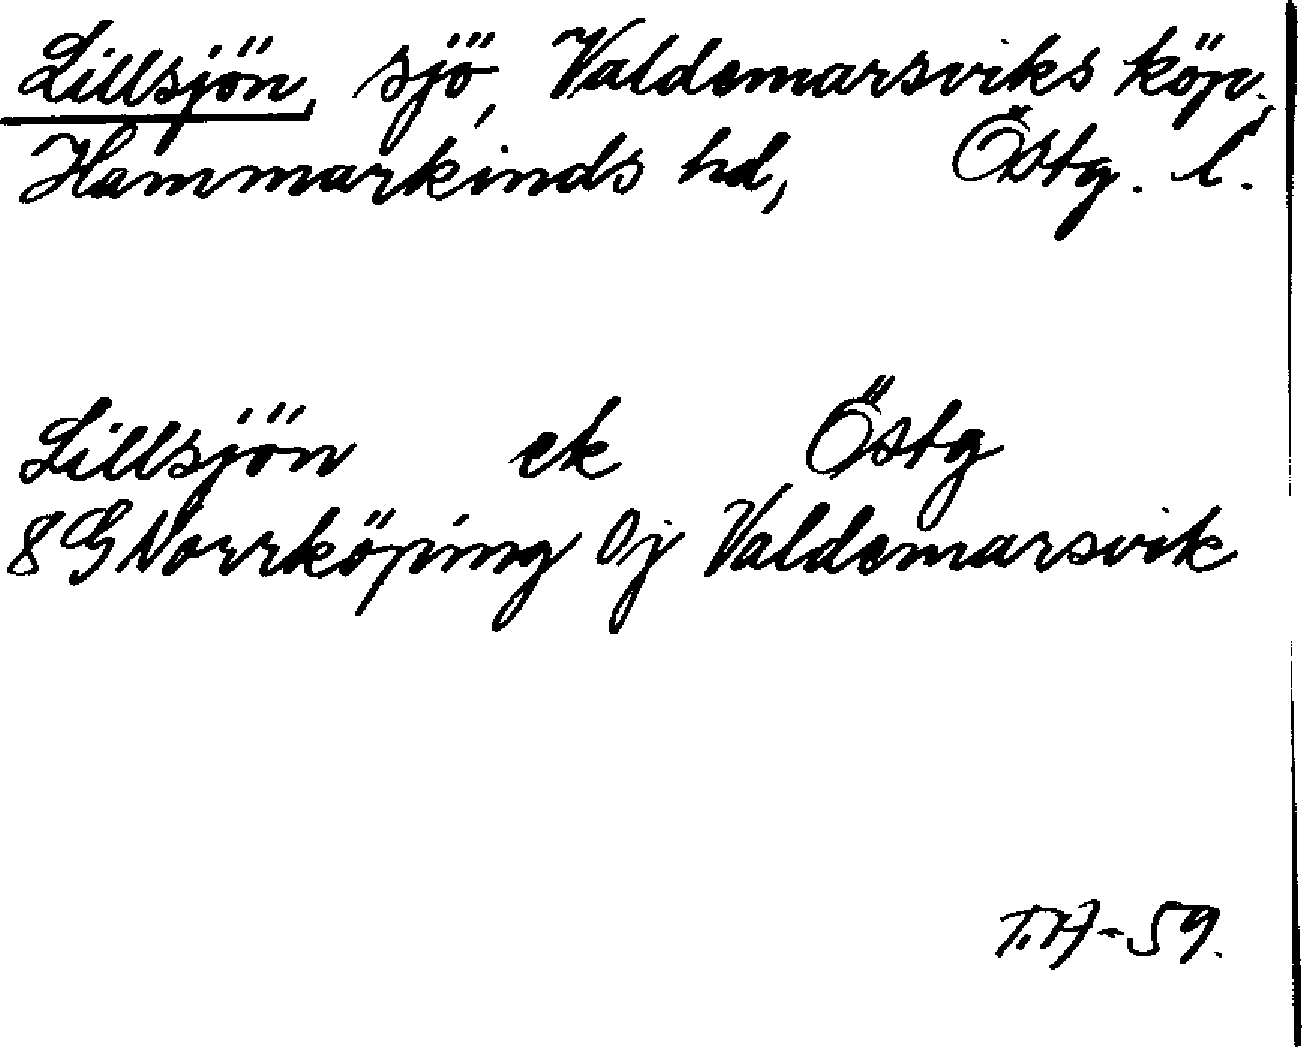 Lillsjön, sjö, Valdemarsviks köp.,
Hammarkinds hd, Östg. l.
Lillsjön ek Östg
8G Norrköping 0j Valdemarsvik
T.A-59.